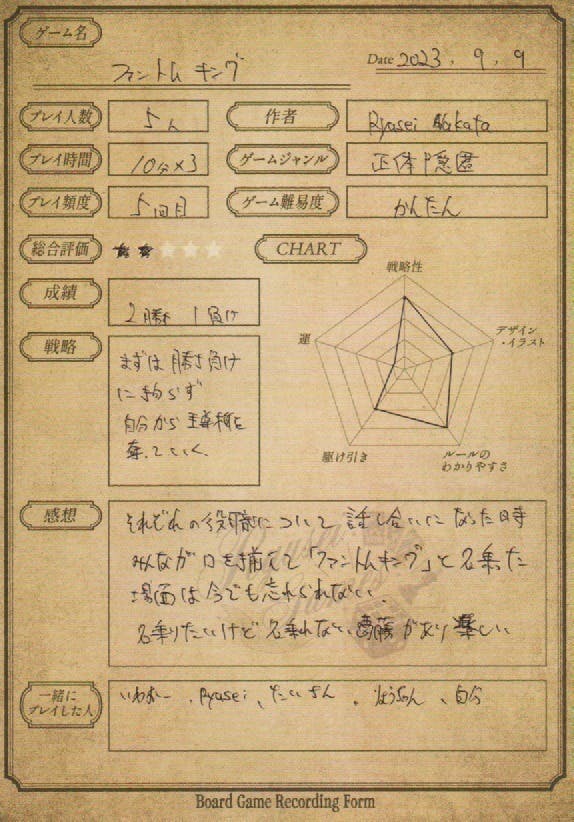 ゲーム名
Date 2023 , 9 , 9
ファントム キング
プレイ人数 5人 作者 Ryusei Nakata
プレイ時間 10分×3 ゲームジャンル 正体隠匿
プレイ頻度 5回目 ゲーム難易度 かんたん
総合評価 ★★★★★ CHART
成績 2勝 1負け
戦略
まずは勝ち負け
に拘らず
自分から主導権を
奪っていく。
戦略性
デザイン
・イラスト
ルールの
わかりやすさ
駆け引き
運
感想
それぞれの役職について話し合いになった時
みんなが口を揃えて「ファントムキング」と名乗った
場面は今でも忘れられない。
名乗りたいけど名乗れない葛藤があり楽しい
一緒に
プレイした人
いわおー、Ryusei、たいきん、りょうちゃん、自分
Board Game Recording Form